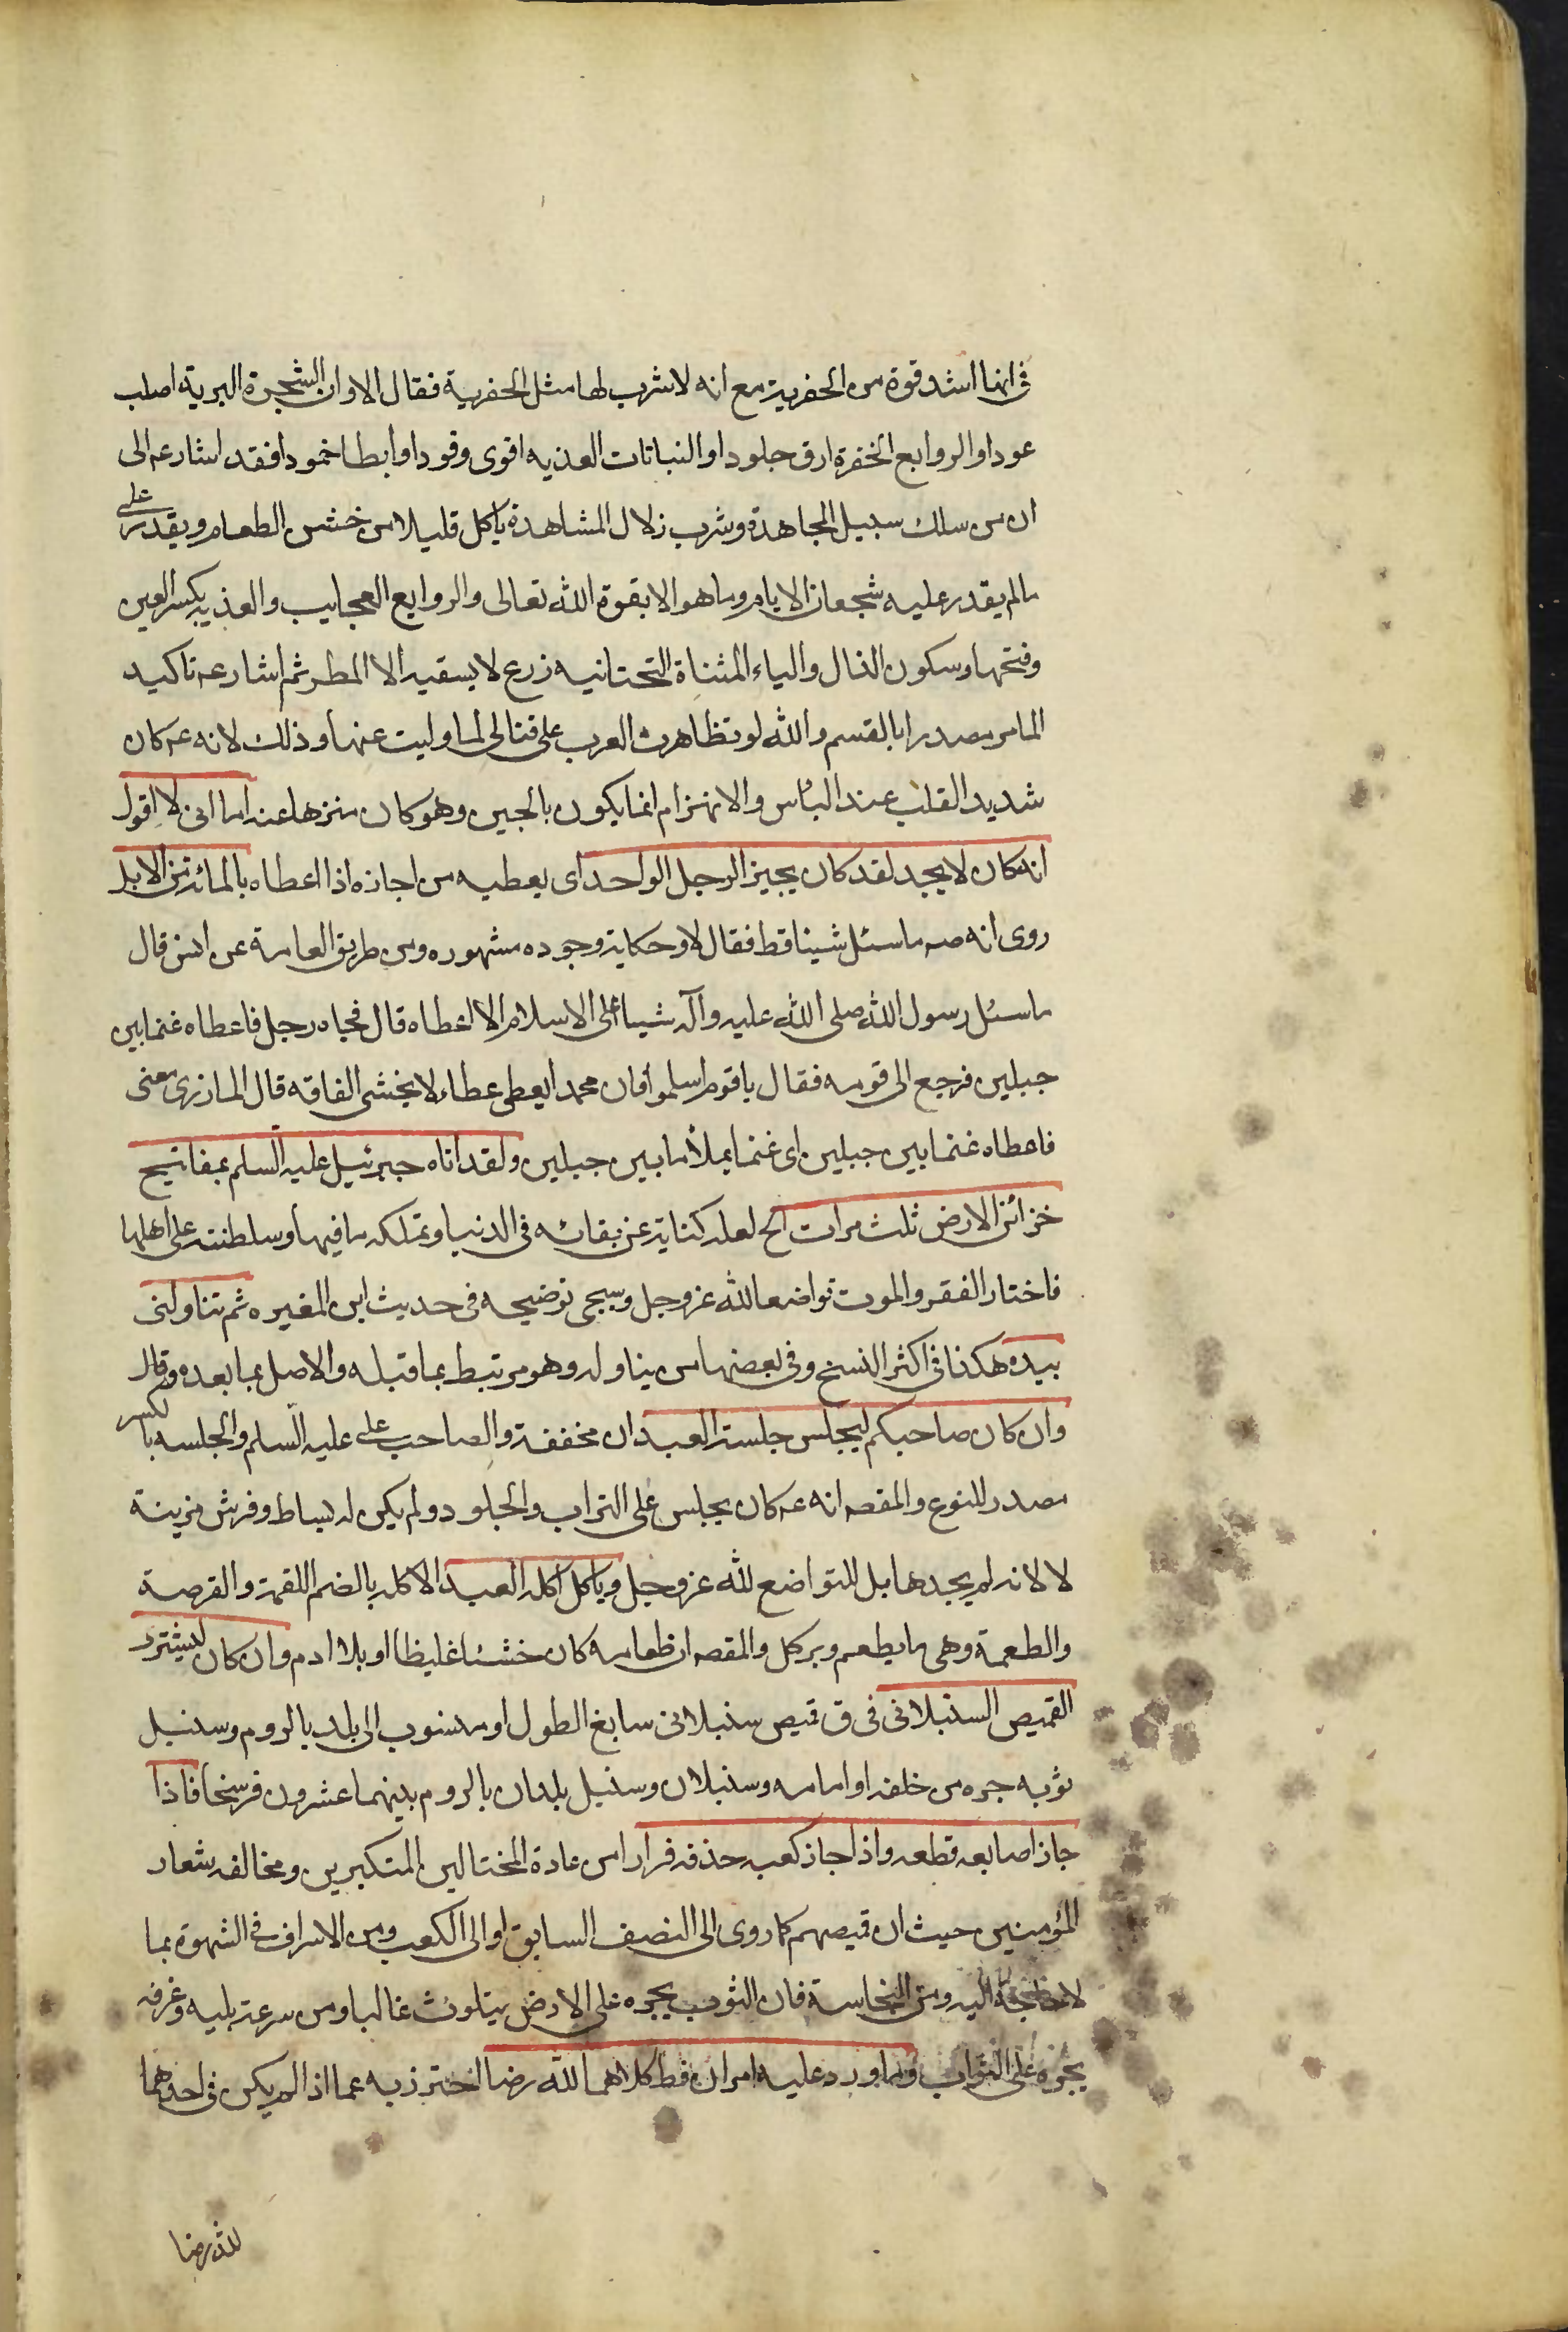 فى انها اشد قوة من الحضرية مع انه لا شرب لها مثل الحضرية فقال الا وان الشجرة البرية اصلب
عودا والروايع الخضرة ارق جلودا والنباتات العذيه اقوى وقودا وابطا خمودا فقد اشار عه الى
ان من سلك سبيل المجاهدة وشرب زلال المشاهدة ياكل قليلا من خشن الطعام ويقدر على
ما لم يقدر عليه شجعان الايام وما هو الا بقوة الله تعالى والروايع العجايب والعذيه بكسر العين
وفتحها وسكون الذال والياء المثناة التحتانيه زرع لا يسقيه الا المطر ثم اشار عه تاكيد
المامر مصدرا بالقسم والله لو تظاهرت العرب على قتالى لما وليت عنها وذلك لانه عه كان
شديد القلب عند الباس والانهزام انما يكون بالجبن وهو كان منزها عنه اما انى لا اقول
انه كان لا يجد لقد كان يجيز الرجل الواحد اى يعطيه من اجازه اذا اعطاه بالمائة من الابل
روى انه صه ما سئل شيئا قط فقال لا وحكاية وجوده مشهوره ومن طريق العامة عن انس قال
ما سئل رسول الله صلى الله عليه وآله شيئا على الاسلام الا اعطاه قال فجاه رجل فاعطاه غنما بين
جبلين فرجع الى قومه فقال يا قوم اسلموا فان محمدا يعطى عطاء لا يخشى الفاقه قال المازرى معنى
فاعطاه غنما بين جبلين اى غنما يملأ ما بين جبلين ولقد اتاه جبرئيل عليه السلم بمفاتيح
خزائن الارض ثلث مرات الخ لعله كناية عن بقائه فى الدنيا وتملكه ما فيها وسلطنته على اهلها
فاختار الفقر والموت تواضعا لله عز وجل وسيجى توضيحه فى حديث ابن المغيره ثم تناولنى
بيده هكذا فى اكثر النسخ وفى بعضها من يناوله وهو مرتبط بما قبله والاصل بما بعده وقال
وان كان صاحبكم ليجلس جلسة العبد ان مخففة والصاحب على عليه السلم والجلسه بالكسر
مصدر للنوع والمقصه انه عه كان يجلس على التراب والجلود ولم يكن له بساط وفرش مزينة
لا لانه لم يجدها بل للتواضع لله عز وجل وياكل اكلة العبد الاكله بالضم اللقمة والقرصة
والطعمة وهى ما يطعم ويركل والمقصه ان طعامه كان خشنا غليظا او بلا ادم وان كان ليشترى
القميص السنبلانى فى ق قميص سنبلانى سابغ الطول او منسوب الى بلد بالروم وسنبل
ثوبه جره من خلفه او امامه وسنبلان وسنبل بلدان بالروم بينهما عشرون فرسخا فاذا
جاز اصابعه قطعه واذا جاز كعبه حذفه فرارا من عادة المختالين المتكبرين ومخالفه شعار
المؤمنين حيث ان قميصهم كما روى الى النصف السابق او الى الكعب ومن الاسراف فى الشهوة بما
لا حاجة اليه ومن النجاسة فان الثوب يجره على الارض يتلوث غالبا ومن سرعة بليه وخرقه
بجره على التراب وما ورد عليه امران قط كلاهما لله رضا احترز به عما اذا لم يكن فى احدهما
لله رضا